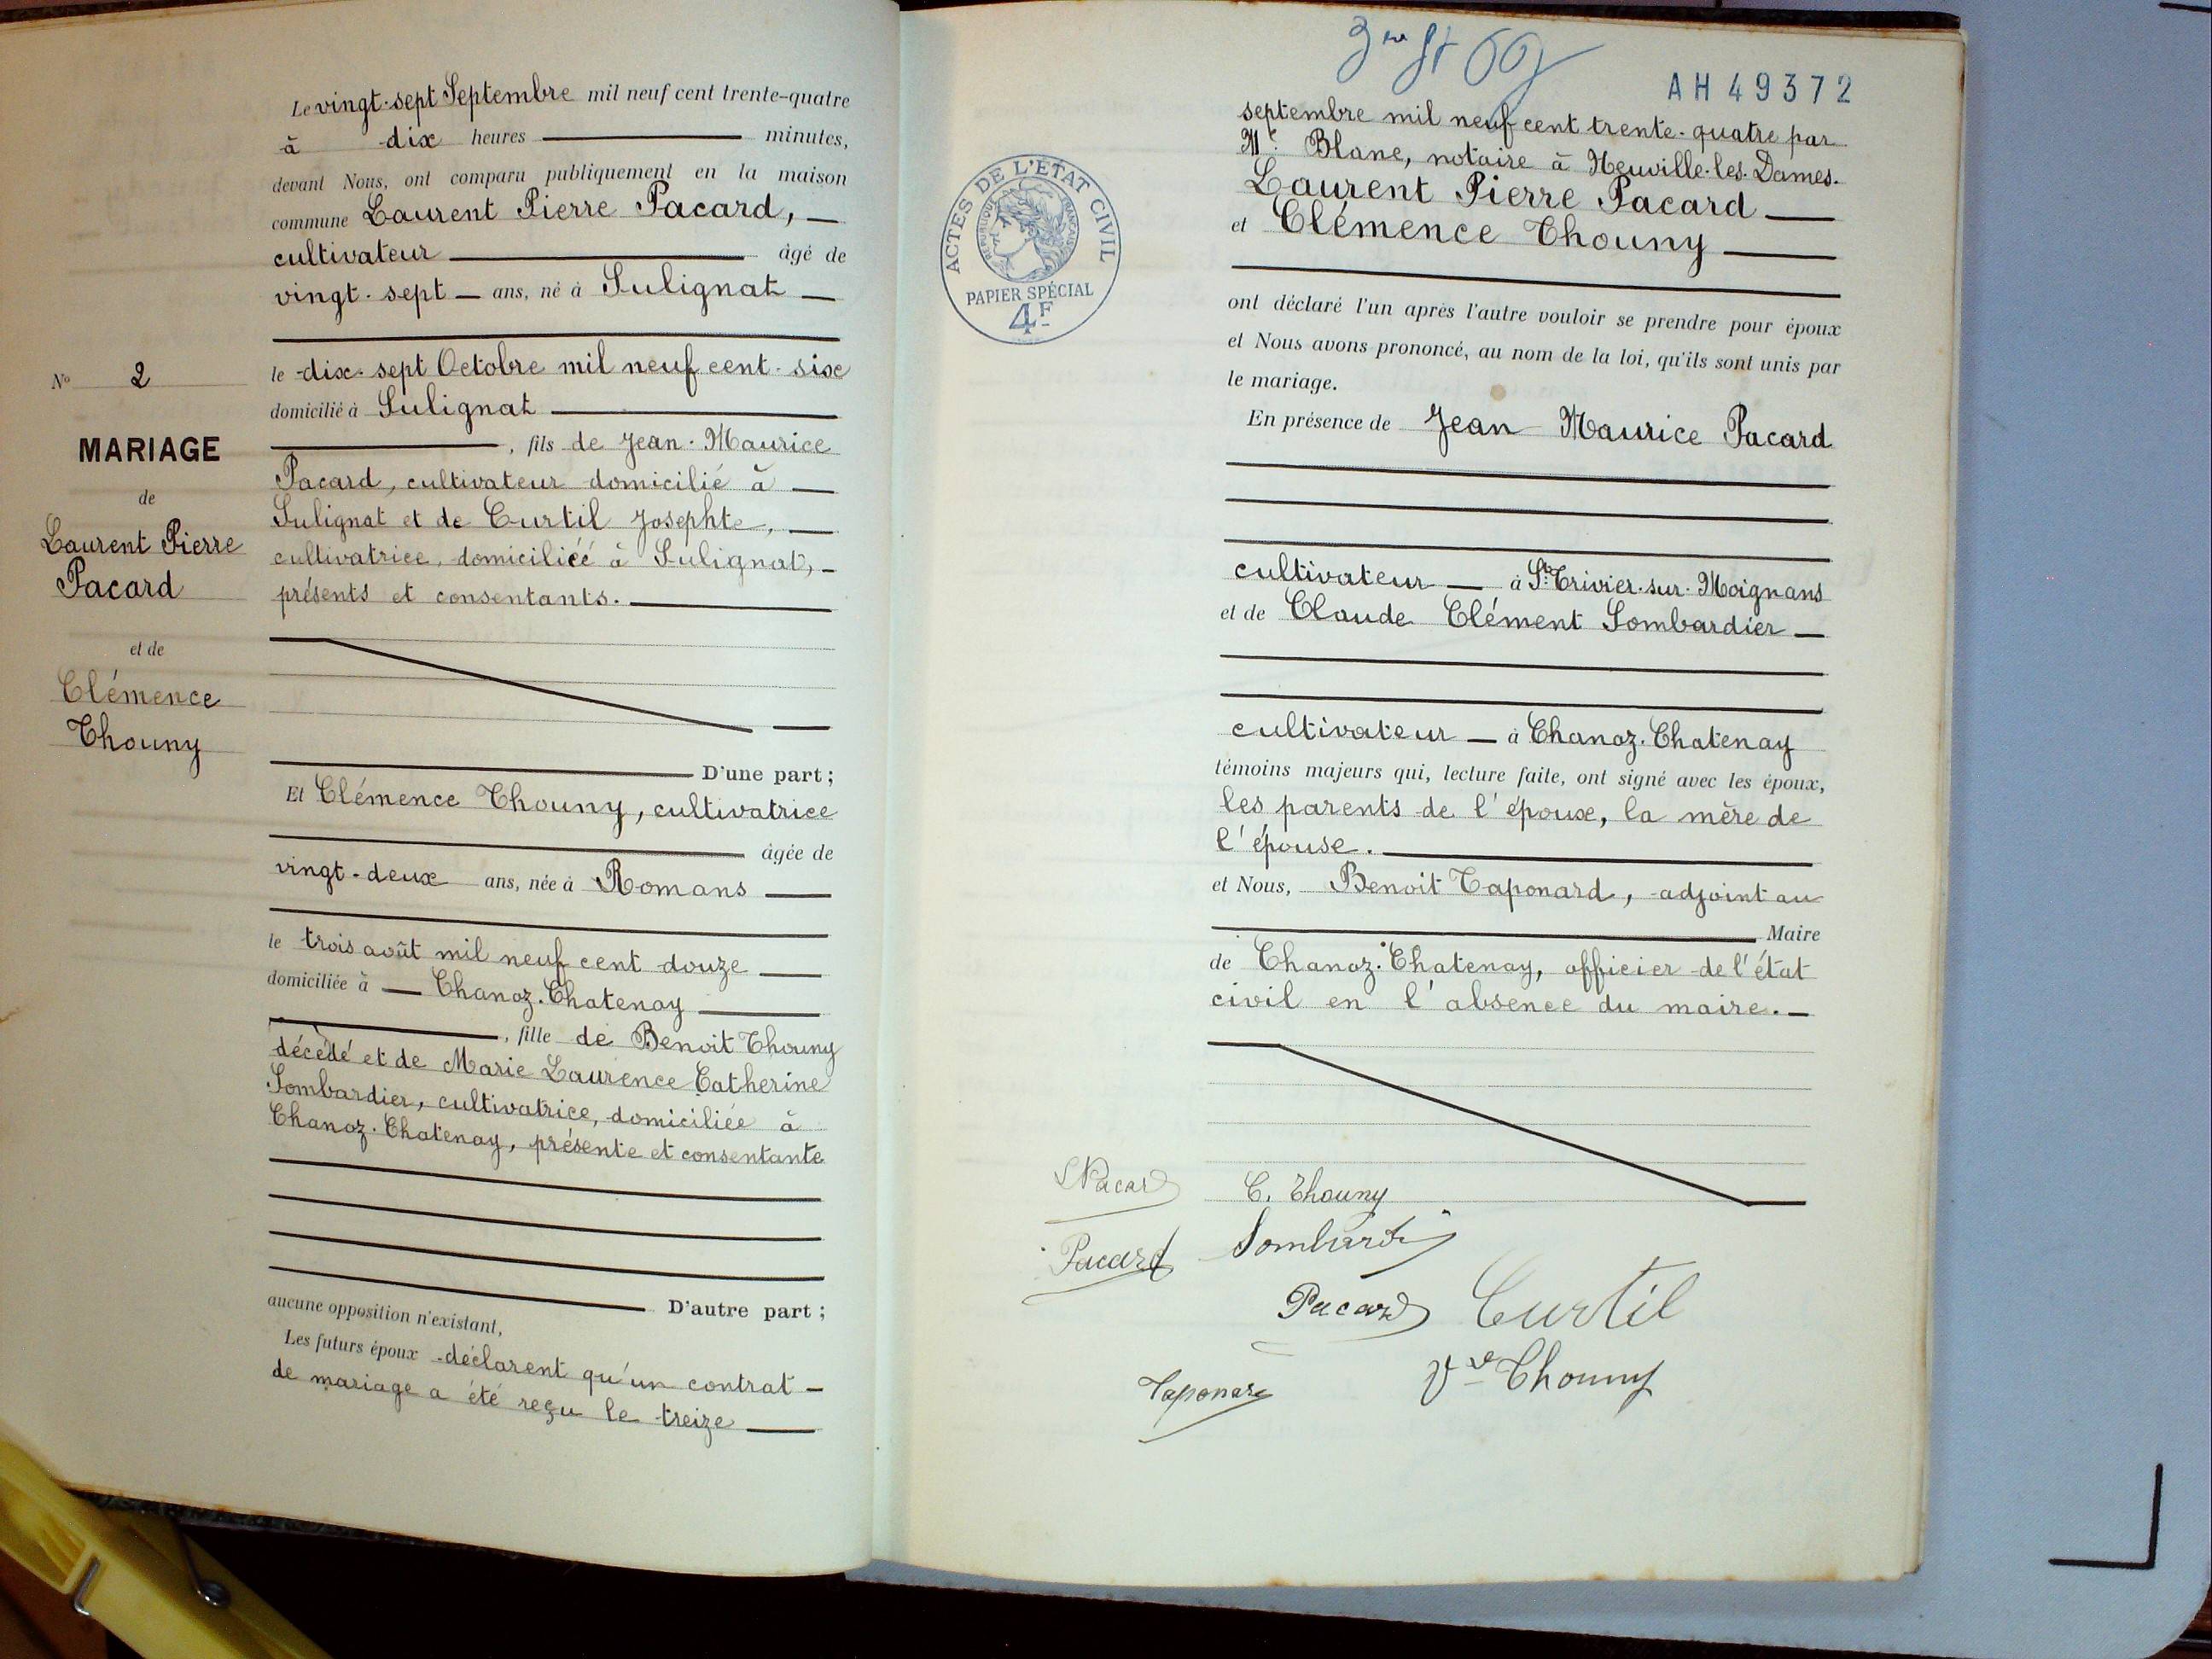 N° 2
MARIAGE
de
Laurent Pierre
Pacard
et de
Clémence
Thouny
Le vingt-sept Septembre mil neuf cent trente-quatre
à dix heures minutes,
devant Nous, ont comparu publiquement en la maison
commune Laurent Pierre Pacard,
cultivateur âgé de
vingt-sept ans, né à Sulignat
le dix-sept Octobre mil neuf cent-six
domicilié à Sulignat
, fils de Jean-Maurice
Pacard, cultivateur domicilié à
Sulignat et de Curtil Josephte,
cultivatrice, domiciliée à Sulignat,
présents et consentants.
D'une part;
Et Clémence Thouny, cultivatrice
âgée de
vingt-deux ans, née à Romans
le trois août mil neuf cent douze
domiciliée à Chanoz-Chatenay
, fille de Benoit Thouny
décédé et de Marie Laurence Catherine
Sombardier, cultivatrice, domiciliée à
Chanoz-Chatenay, présente et consentante
D'autre part;
aucune opposition n'existant,
Les futurs époux déclarent qu'un contrat
de mariage a été reçu le treize
AH 49372
ACTES DE L'ÉTAT CIVIL
RÉPUBLIQUE FRANÇAISE
PAPIER SPÉCIAL
4F
septembre mil neuf cent trente-quatre par
Me Blanc, notaire à Neuville-les-Dames.
Laurent Pierre Pacard
et Clémence Thouny
ont déclaré l'un après l'autre vouloir se prendre pour époux
et Nous avons prononcé, au nom de la loi, qu'ils sont unis par
le mariage.
En présence de Jean Maurice Pacard
cultivateur à St Trivier-sur-Moignans
et de Claude Clément Sombardier
cultivateur à Chanoz-Chatenay
témoins majeurs qui, lecture faite, ont signé avec les époux,
les parents de l'époux, la mère de
l'épouse.
et Nous, Benoit Taponard, adjoint au
Maire
de Chanoz-Chatenay, officier de l'état
civil en l'absence du maire.
Pacard C. Thouny
Pacard Sombardier
Pacard Curtil
Taponard Vve Thouny